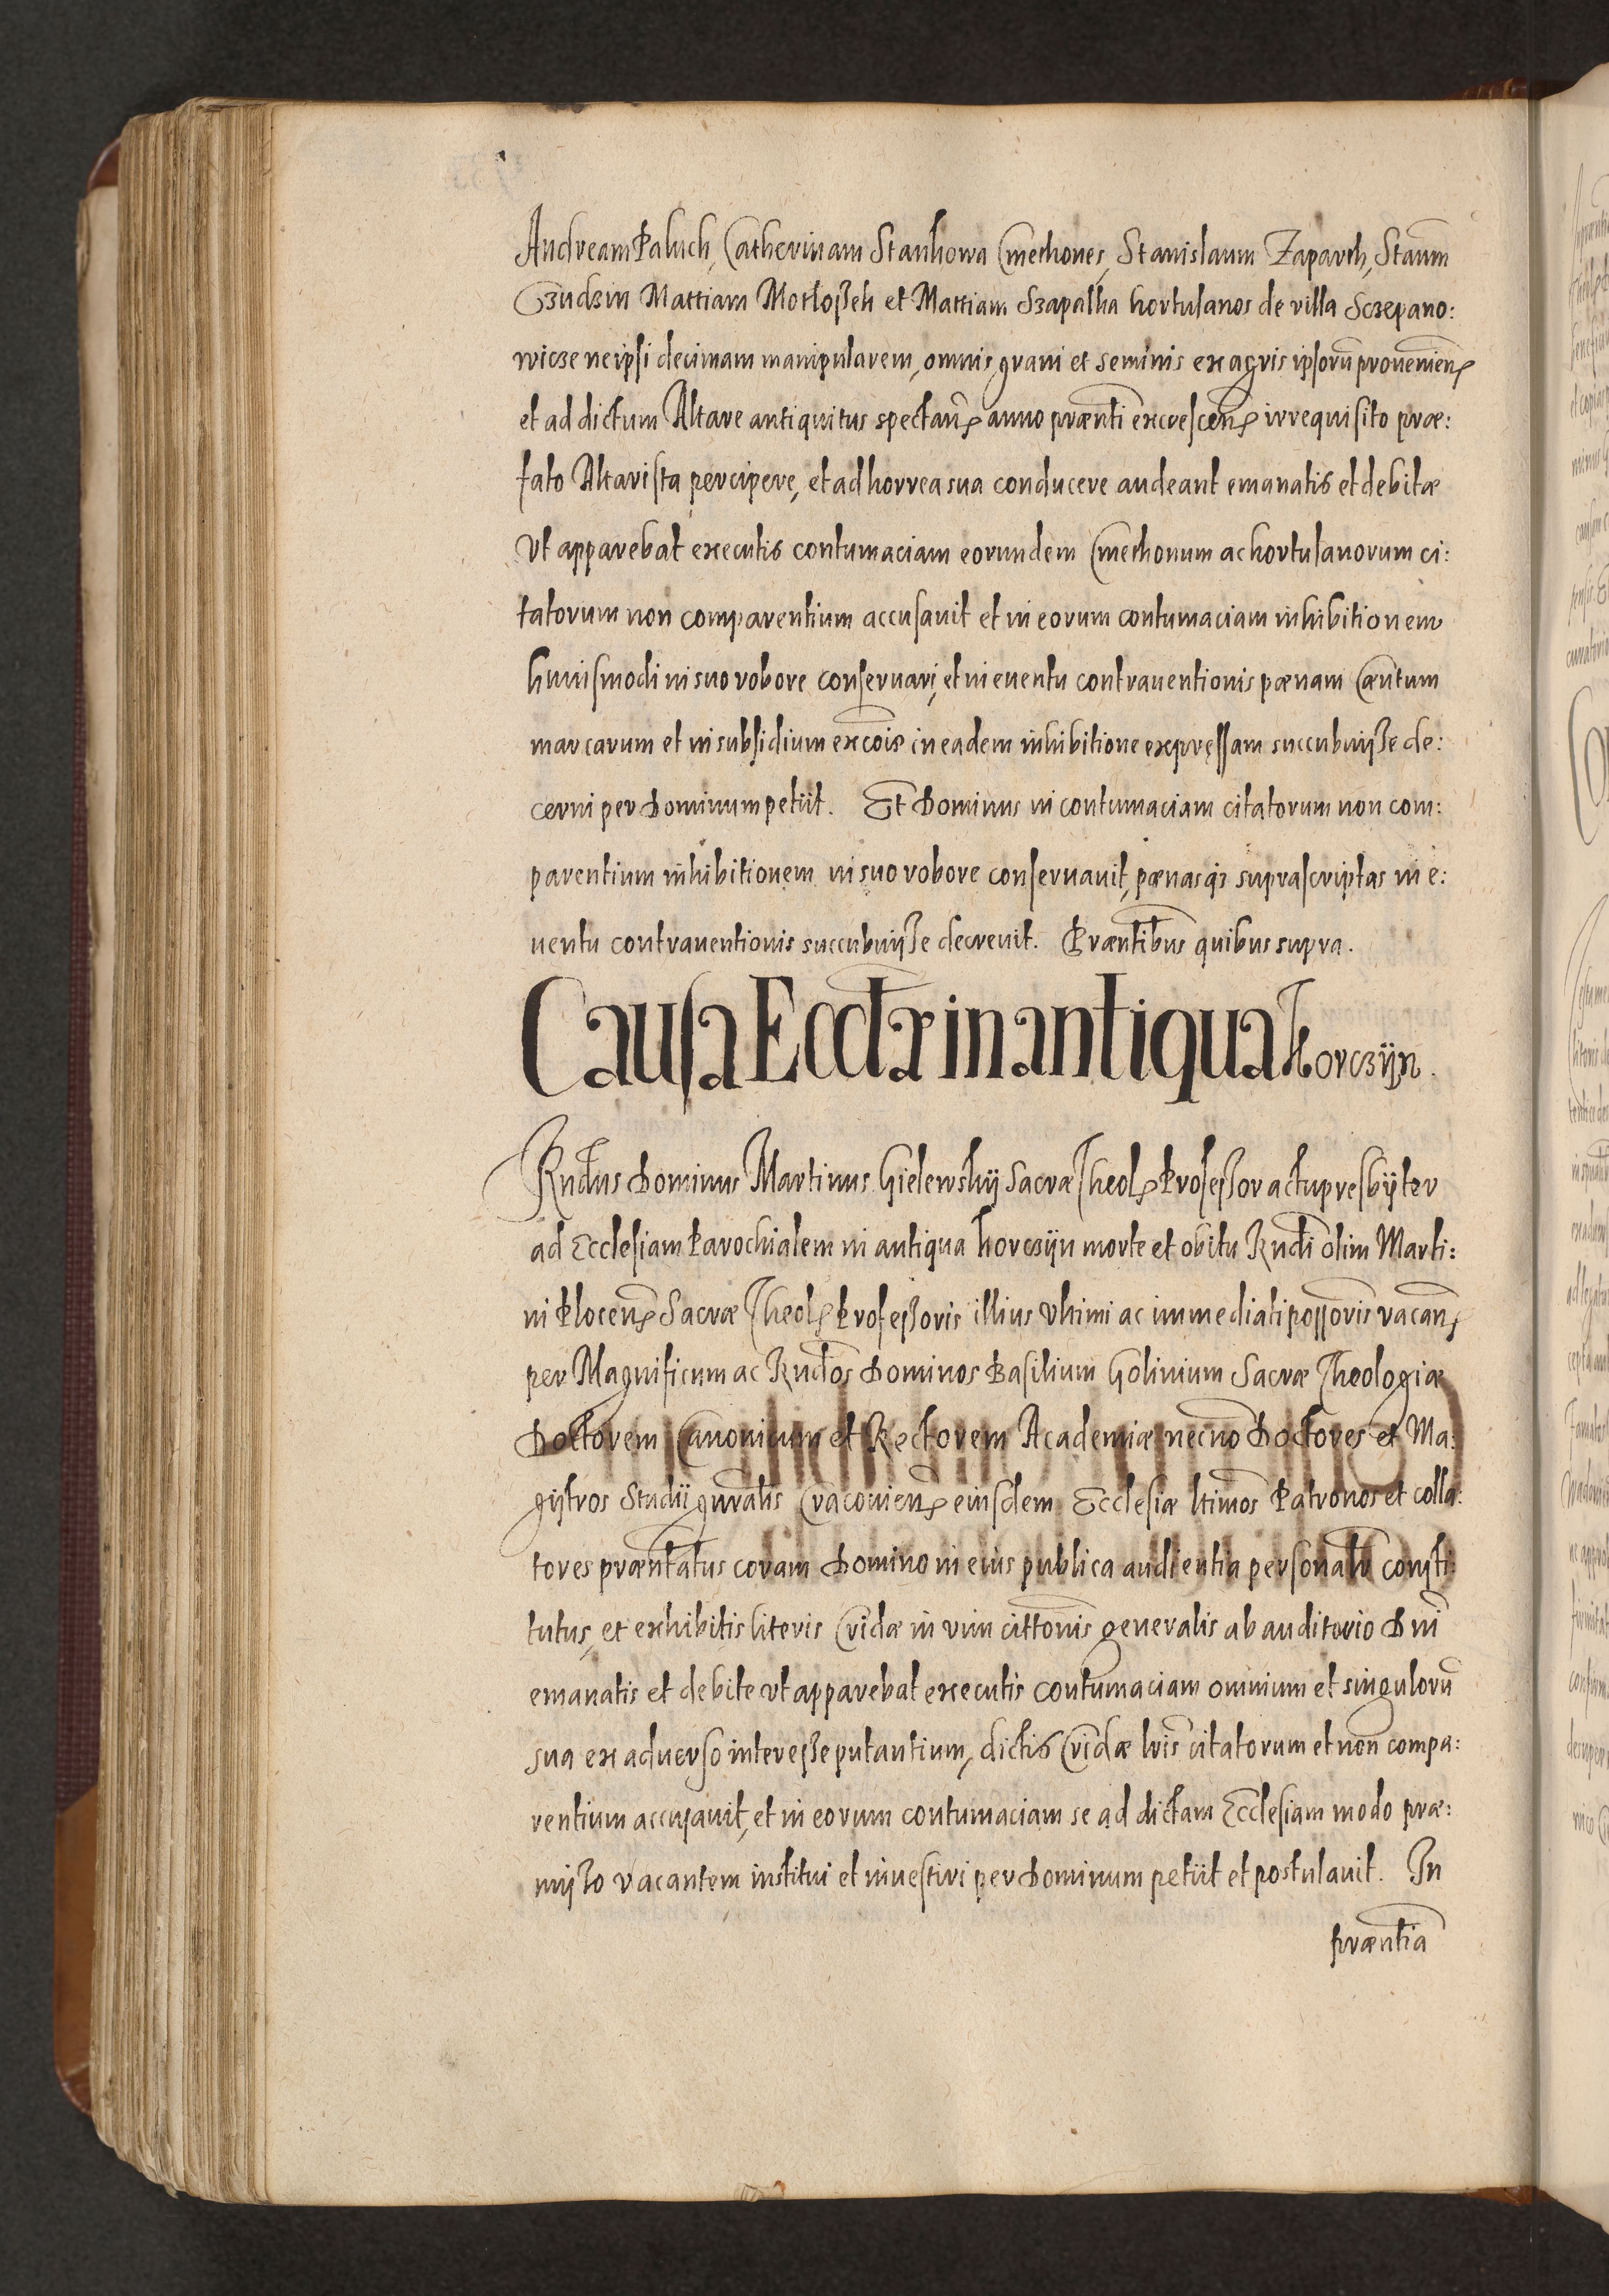 Andream Paluch, Catherinam Stankowa Cmethones, Stanislaum Zaparth, Stanm
Czudzin Mattiam Motloßek et Mattiam Szapalka hortulanos de villa Sczepano:
wicze ne ipsi decimam manipularem, omnis grani et seminis ex agris ipsorũ prouenien
et ad dictum Altare antiquitus spectan anno præñti excrescen irrequisito præ:
fato Altarista percipere, et ad horrea sua conducere audeant emanatis et debitæ
vt apparebat executis contumaciam eorundem Cmethonum ac hortulanorum ci:
tatorum non comparentium accusauit et in eorum contumaciam inhibitionem
huiusmodi in suo robore conseruari, et in euentu contrauentionis pænam Centum
marcarum et in subsidium excõis in eadem inhibitione expressam succubuiße de:
cerni per Dominum petiit. Et Dominus in contumaciam citatorum non com:
parentium inhibitionem in suo robore conseruauit, pænasq3 suprascriptas in e:
uentu contrauentionis succubuiße decreuit. Præntibus quibus supra.
Causa Ecclæ in antiqua Korczÿn.
Rndus Dominus Martinus Gielewskÿ Sacræ Theol Profeßor actu presbÿter
ad Ecclesiam Parochialem in antiqua Korczÿn morte et obitu Rndi olim Marti:
ni Plocen Sacræ Theol Profeßoris illius vltimi ac immediati possoris vacan
per Magnificum ac Rndos Dominos Basilium Golinium Sacræ Theologiæ
Doctorem Canonicum et Rectorem Academiæ necnõ Doctores et Ma:
gistros Studii gnralis Cracouien eiusdem Ecclesiæ ltimos Patronos et colla:
tores præntatus coram Domino in eius publica audientia personalr consti:
tutus, et exhibitis literis Cridæ in vim cittonis generalis ab auditorio Dni
emanatis et debite vt apparebat executis contumaciam omnium et singulorũ
sua ex aduerso intereße putantium, dictis Cridæ lris citatorum et non compa:
rentium accusauit, et in eorum contumaciam se ad dictam Ecclesiam modo præ:
mißo vacantem institui et inuestiri per Dominum petiit et postulauit. In
præntia